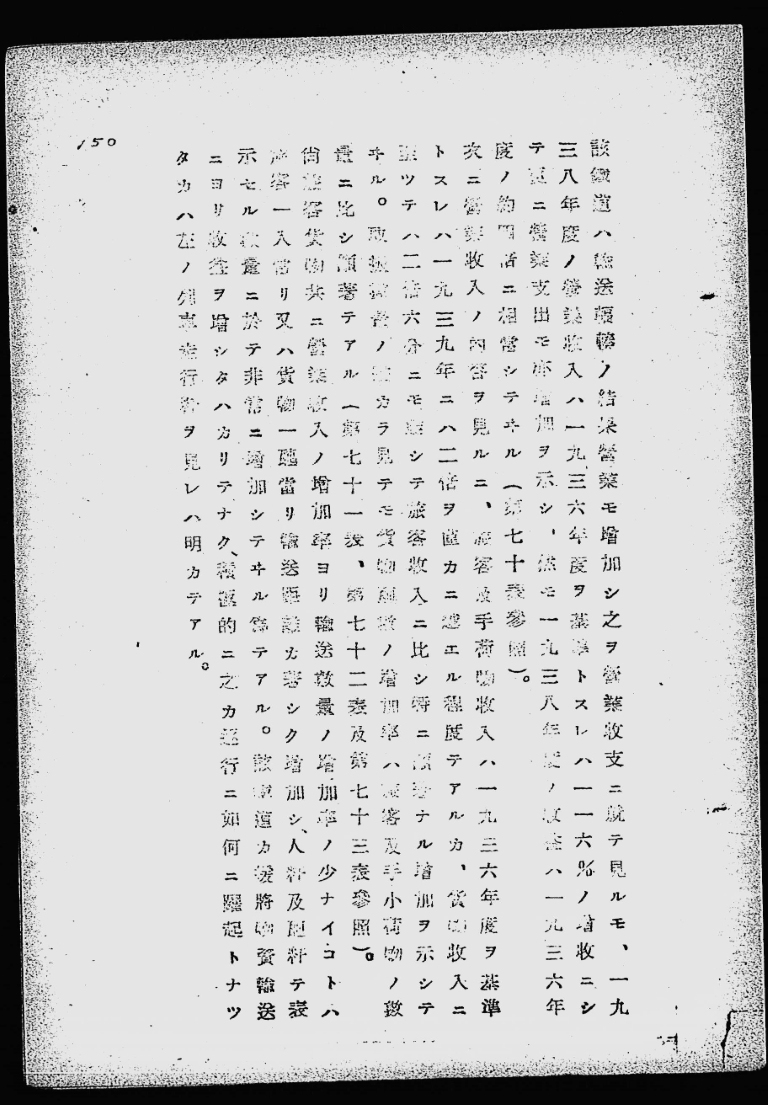 150
該鐵道ハ輸送輻輳ノ結果營業モ增加シ之ヲ營業收支ニ就テ見ルモ、一九
三八年度ノ營業收入ハ一九三六年度ヲ基準トスレハ一一六%ノ增收ニシ
テ更ニ營業支出モ亦增加ヲ示シ、然モ一九三八年度ノ收益ハ一九三六年
度ノ約四倍ニ相當シテヰル(第七十表參照)。
次ニ營業收入ノ內容ヲ見ルニ、旅客及手荷物收入ハ一九三六年度ヲ基準
トスレハ一九三九年ニハ二倍ヲ直カニ越エル程度テアルカ、貨物收入ニ
ツテハ二倍六分ニモ達シテ旅客收入ニ比シ特ニ顯著ナル增加ヲ示シテ
ヰル。取扱數量ノ カラ見テモ貨物數量ノ增加率ハ旅客及手小荷物ノ數
量ニ比シ顯著テアル(第七十一表、第七十二表及第七十三表參照)。
尙旅客貨物共ニ營業收入ノ增加率ヨリ輸送數量ノ增加率ノ少ナイコトハ
旅客一人當リ又ハ貨物一瓲當リ輸送距離カ著シク增加シ、人粁及瓲粁テ表
示セル數量ニ於テ非常ニ增加シテヰル爲テアル。該鐵道カ援將物資輸送
ニヨリ收益ヲ增シタハカリテナク、積極的ニ之カ遂行ニ如何ニ躍起トナツ
タカハ左ノ列車走行粁ヲ見レハ明カテアル。